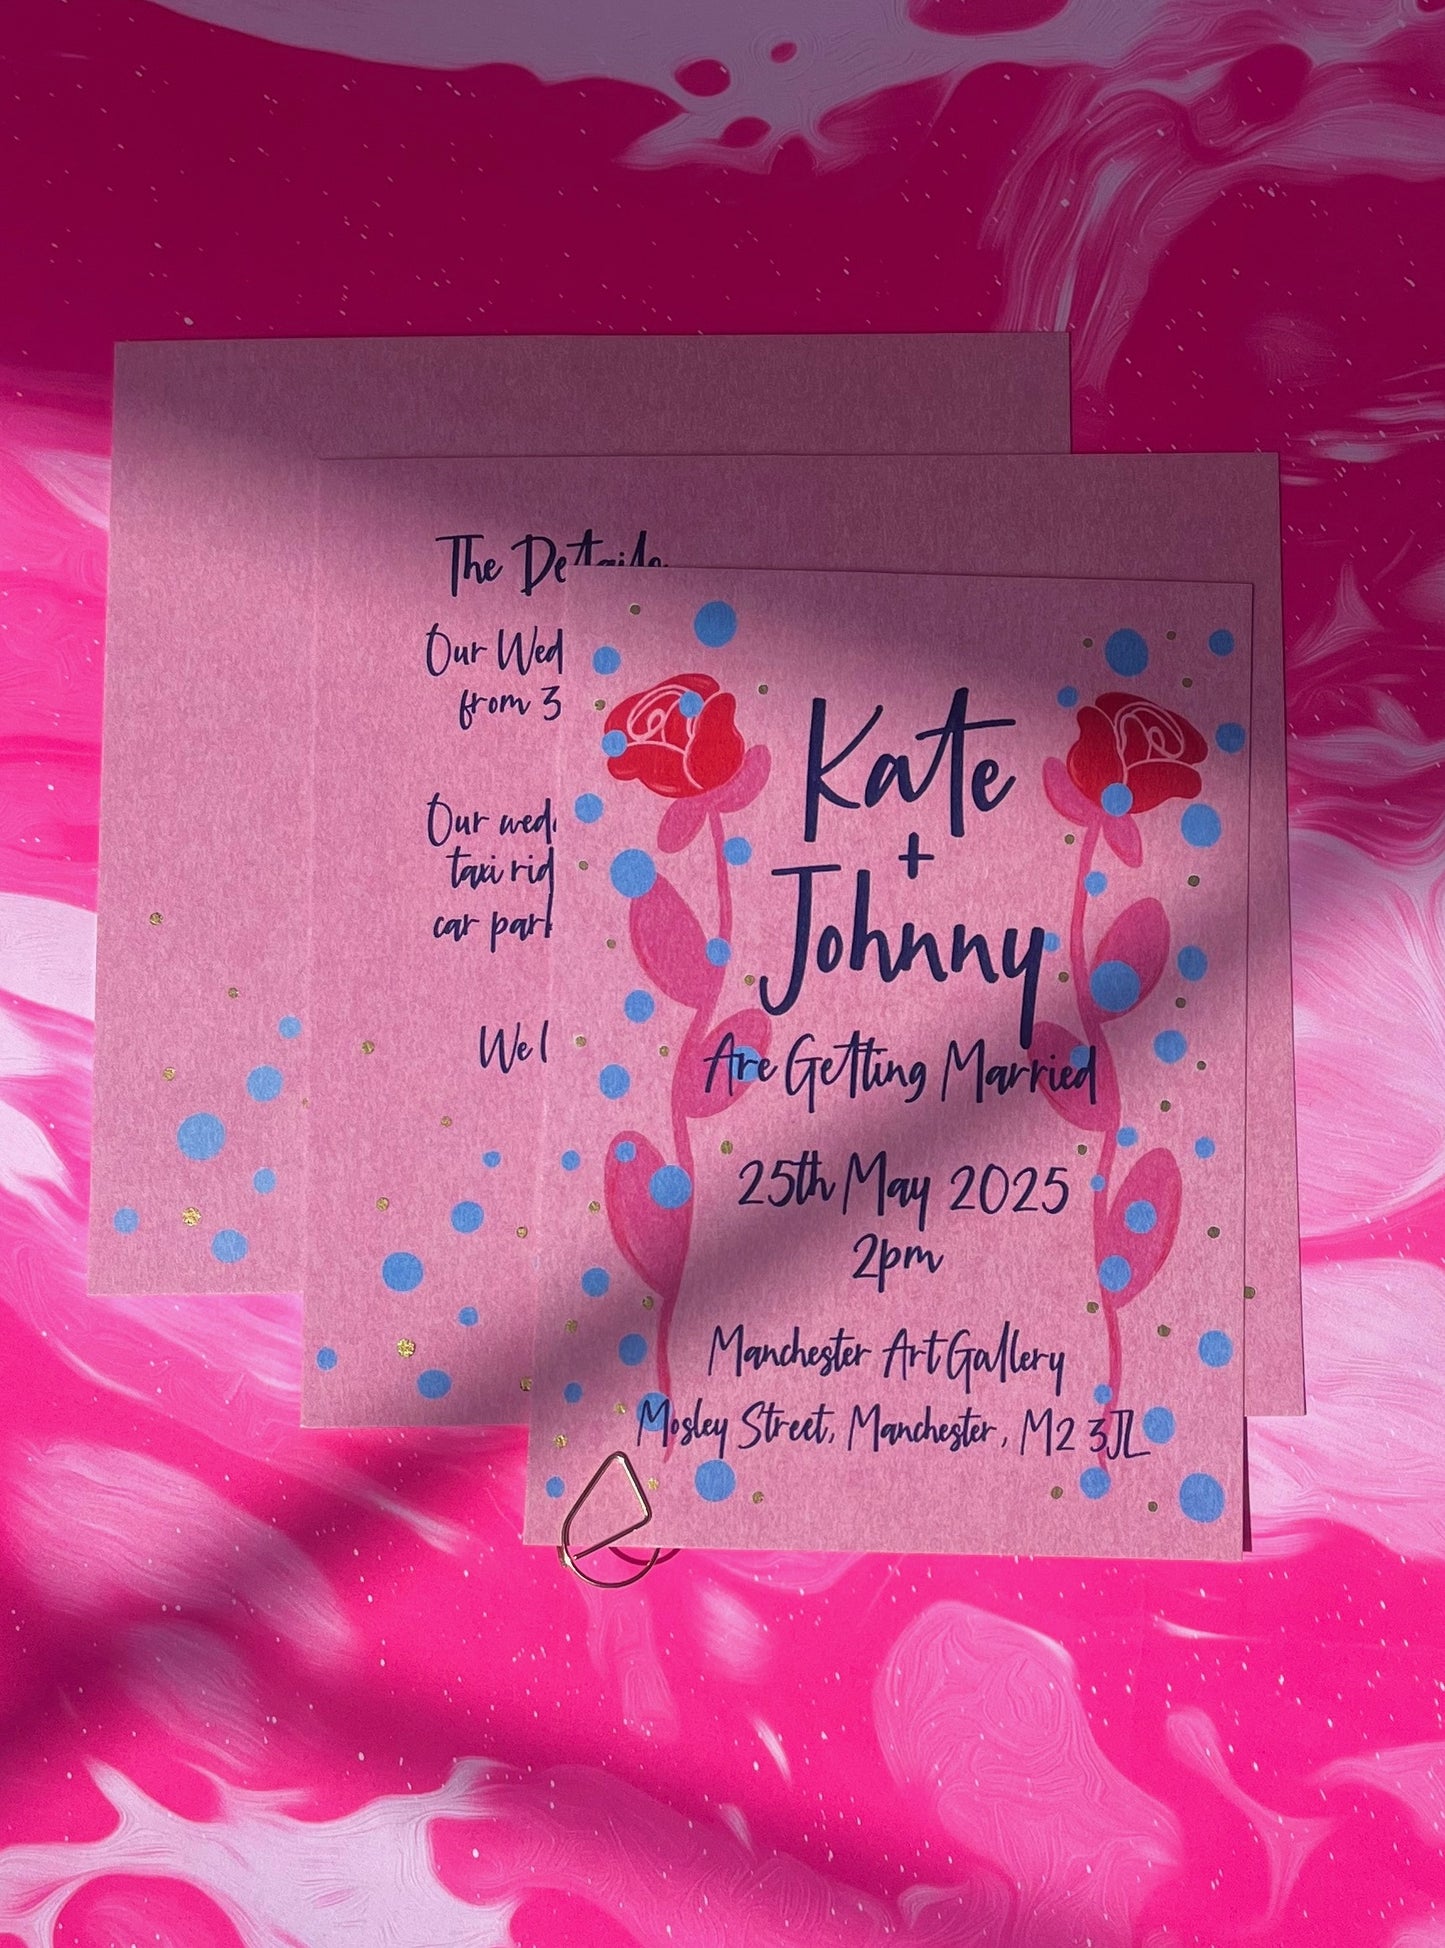 The Details
Our Wed
from 3
Our wed
taxi rid
car park
We
Kate
+
Johnny
Are Getting Married
25th May 2025
2pm
Manchester Art Gallery
Mosley Street, Manchester, M2 3JL